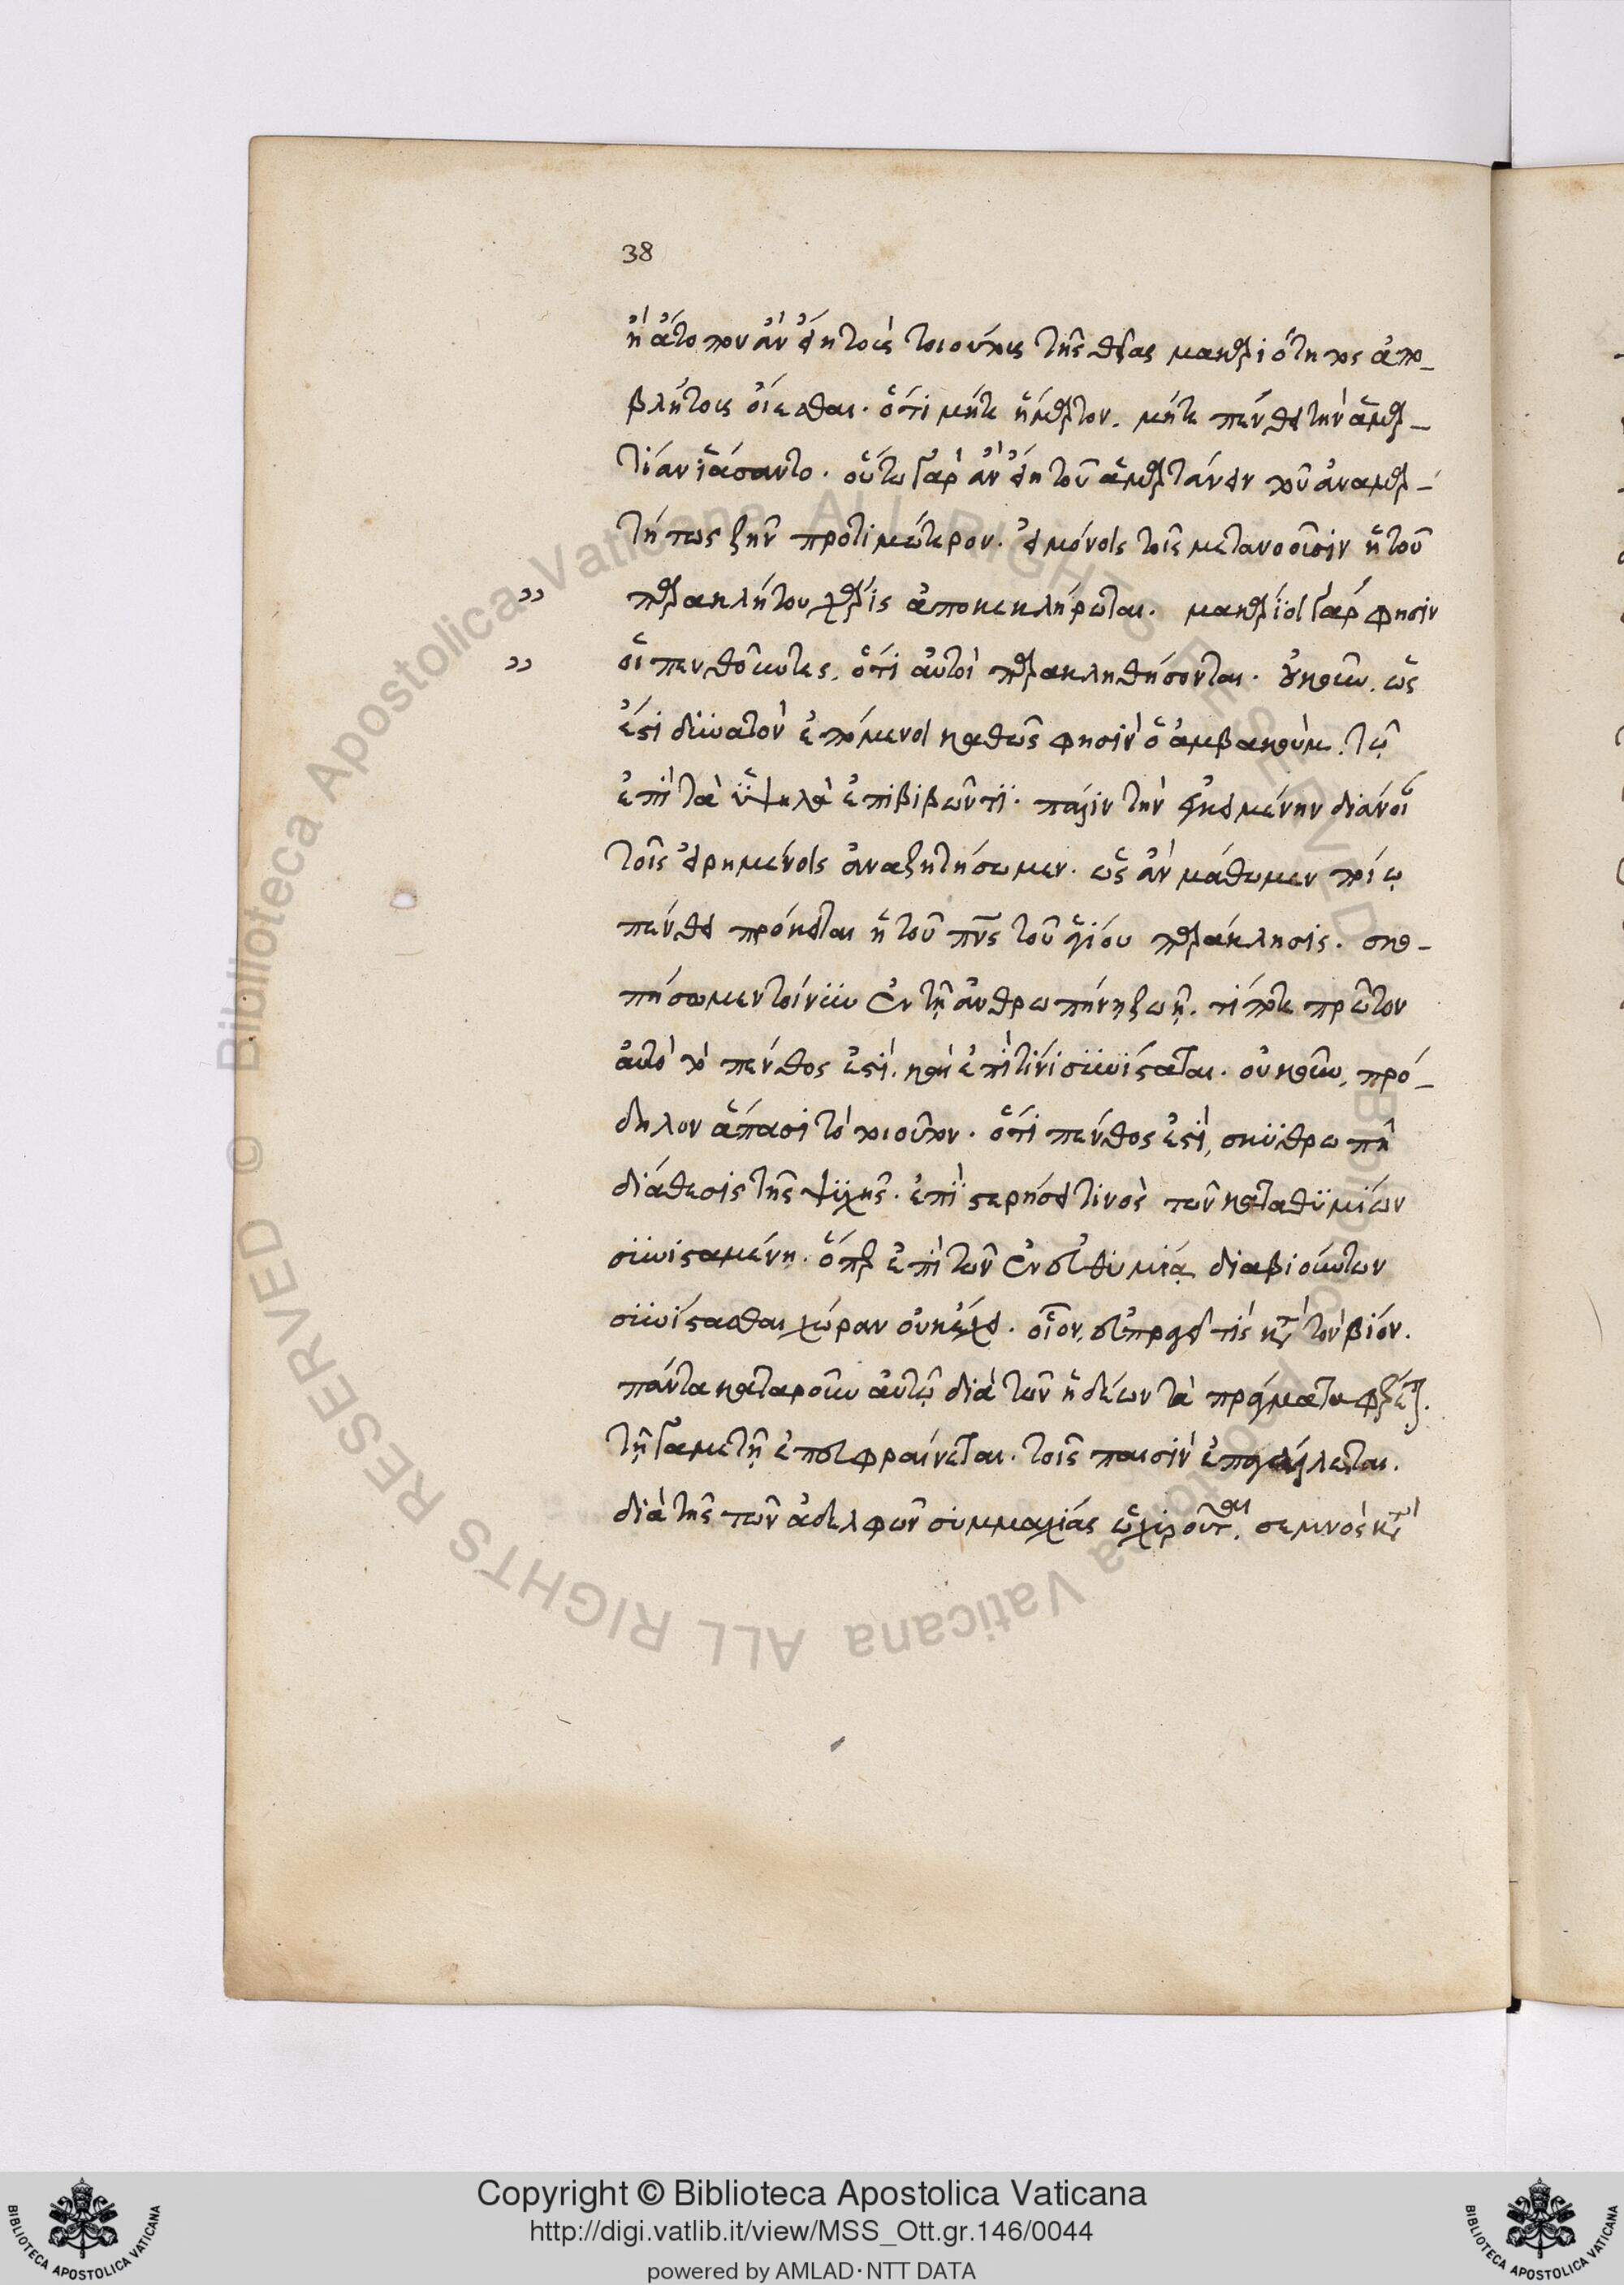 38
ἢ ἄτοπον ἂν εἴη τοὺς τοιούτους τῆς θείας μακαριότητος ἀπο-
βλήτους οἴεσθαι. ὅτι μήτε ἥμαρτον. μήτε πένθει τὴν ἁμαρ-
τίαν ἰάσαντο. οὕτω γὰρ ἂν εἴη τοῦ ἁμαρτάνειν τοῦ ἀναμαρ-
τήτως ζῆν προτιμώτερον. εἰ μόνοις τοῖς μετανοοῦσιν ἡ τοῦ
παρακλήτου χάρις ἀποκεκλήρωται. μακάριοι γάρ φησιν
οἱ πενθοῦντες, ὅτι αὐτοὶ παρακληθήσονται. οὐκοῦν, ὡς
ἔστι δυνατὸν ἑπόμενοι καθὼς φησὶν ὁ ἀμβακοὺμ. τῷ
ἐπὶ τὰ ὑψηλὰ ἐπιβιβῶντι. πάλιν τὴν ἐγκειμένην διάνοι
τοῖς εἰρημένοις ἀναζητήσωμεν. ὡς ἂν μάθωμεν ποίῳ
πένθει πρόκειται ἡ τοῦ πνς τοῦ ἁγίου παράκλησις. σκο-
πήσωμεν τοίνυν ἐν τῇ ἀνθρωπίνῃ ζωῇ. τί ποτε πρῶτον
αὐτὸ τὸ πένθος ἐστὶ. καὶ ἐπὶ τίνι συνίσταται. οὐκοῦν, πρό-
δηλον ἅπασι τὸ τοιοῦτον. ὅτι πένθος ἐστὶ, σκυθρωπὴ
διάθεσις τῆς ψυχῆς. ἐπὶ στερήσει τινὸς τῶν καταθυμίων
συνισταμένη. ὅπερ ἐπὶ τῶν ἐν εὐθυμίᾳ διαβιούντων
συνίστασθαι χώραν οὐκ ἔχει. οἷον, εὐπραγεῖ τίς κατὰ τὸν βίον.
πάντα κατὰ ροῦν αὐτῷ διὰ τῶν ἡδέων τὰ πράγματα φέρεται.
τῇ γαμετῇ ἐπευφραίνεται. τοῖς παισὶν ἐπαγάλλεται.
διὰ τῆς τῶν ἀδελφῶν συμμαχίας ὠχυροῦται. σεμνὸς κατὰ
Copyright © Biblioteca Apostolica Vaticana
http://digi.vatlib.it/view/MSS_Ott.gr.146/0044
powered by AMLAD·NTT DATA